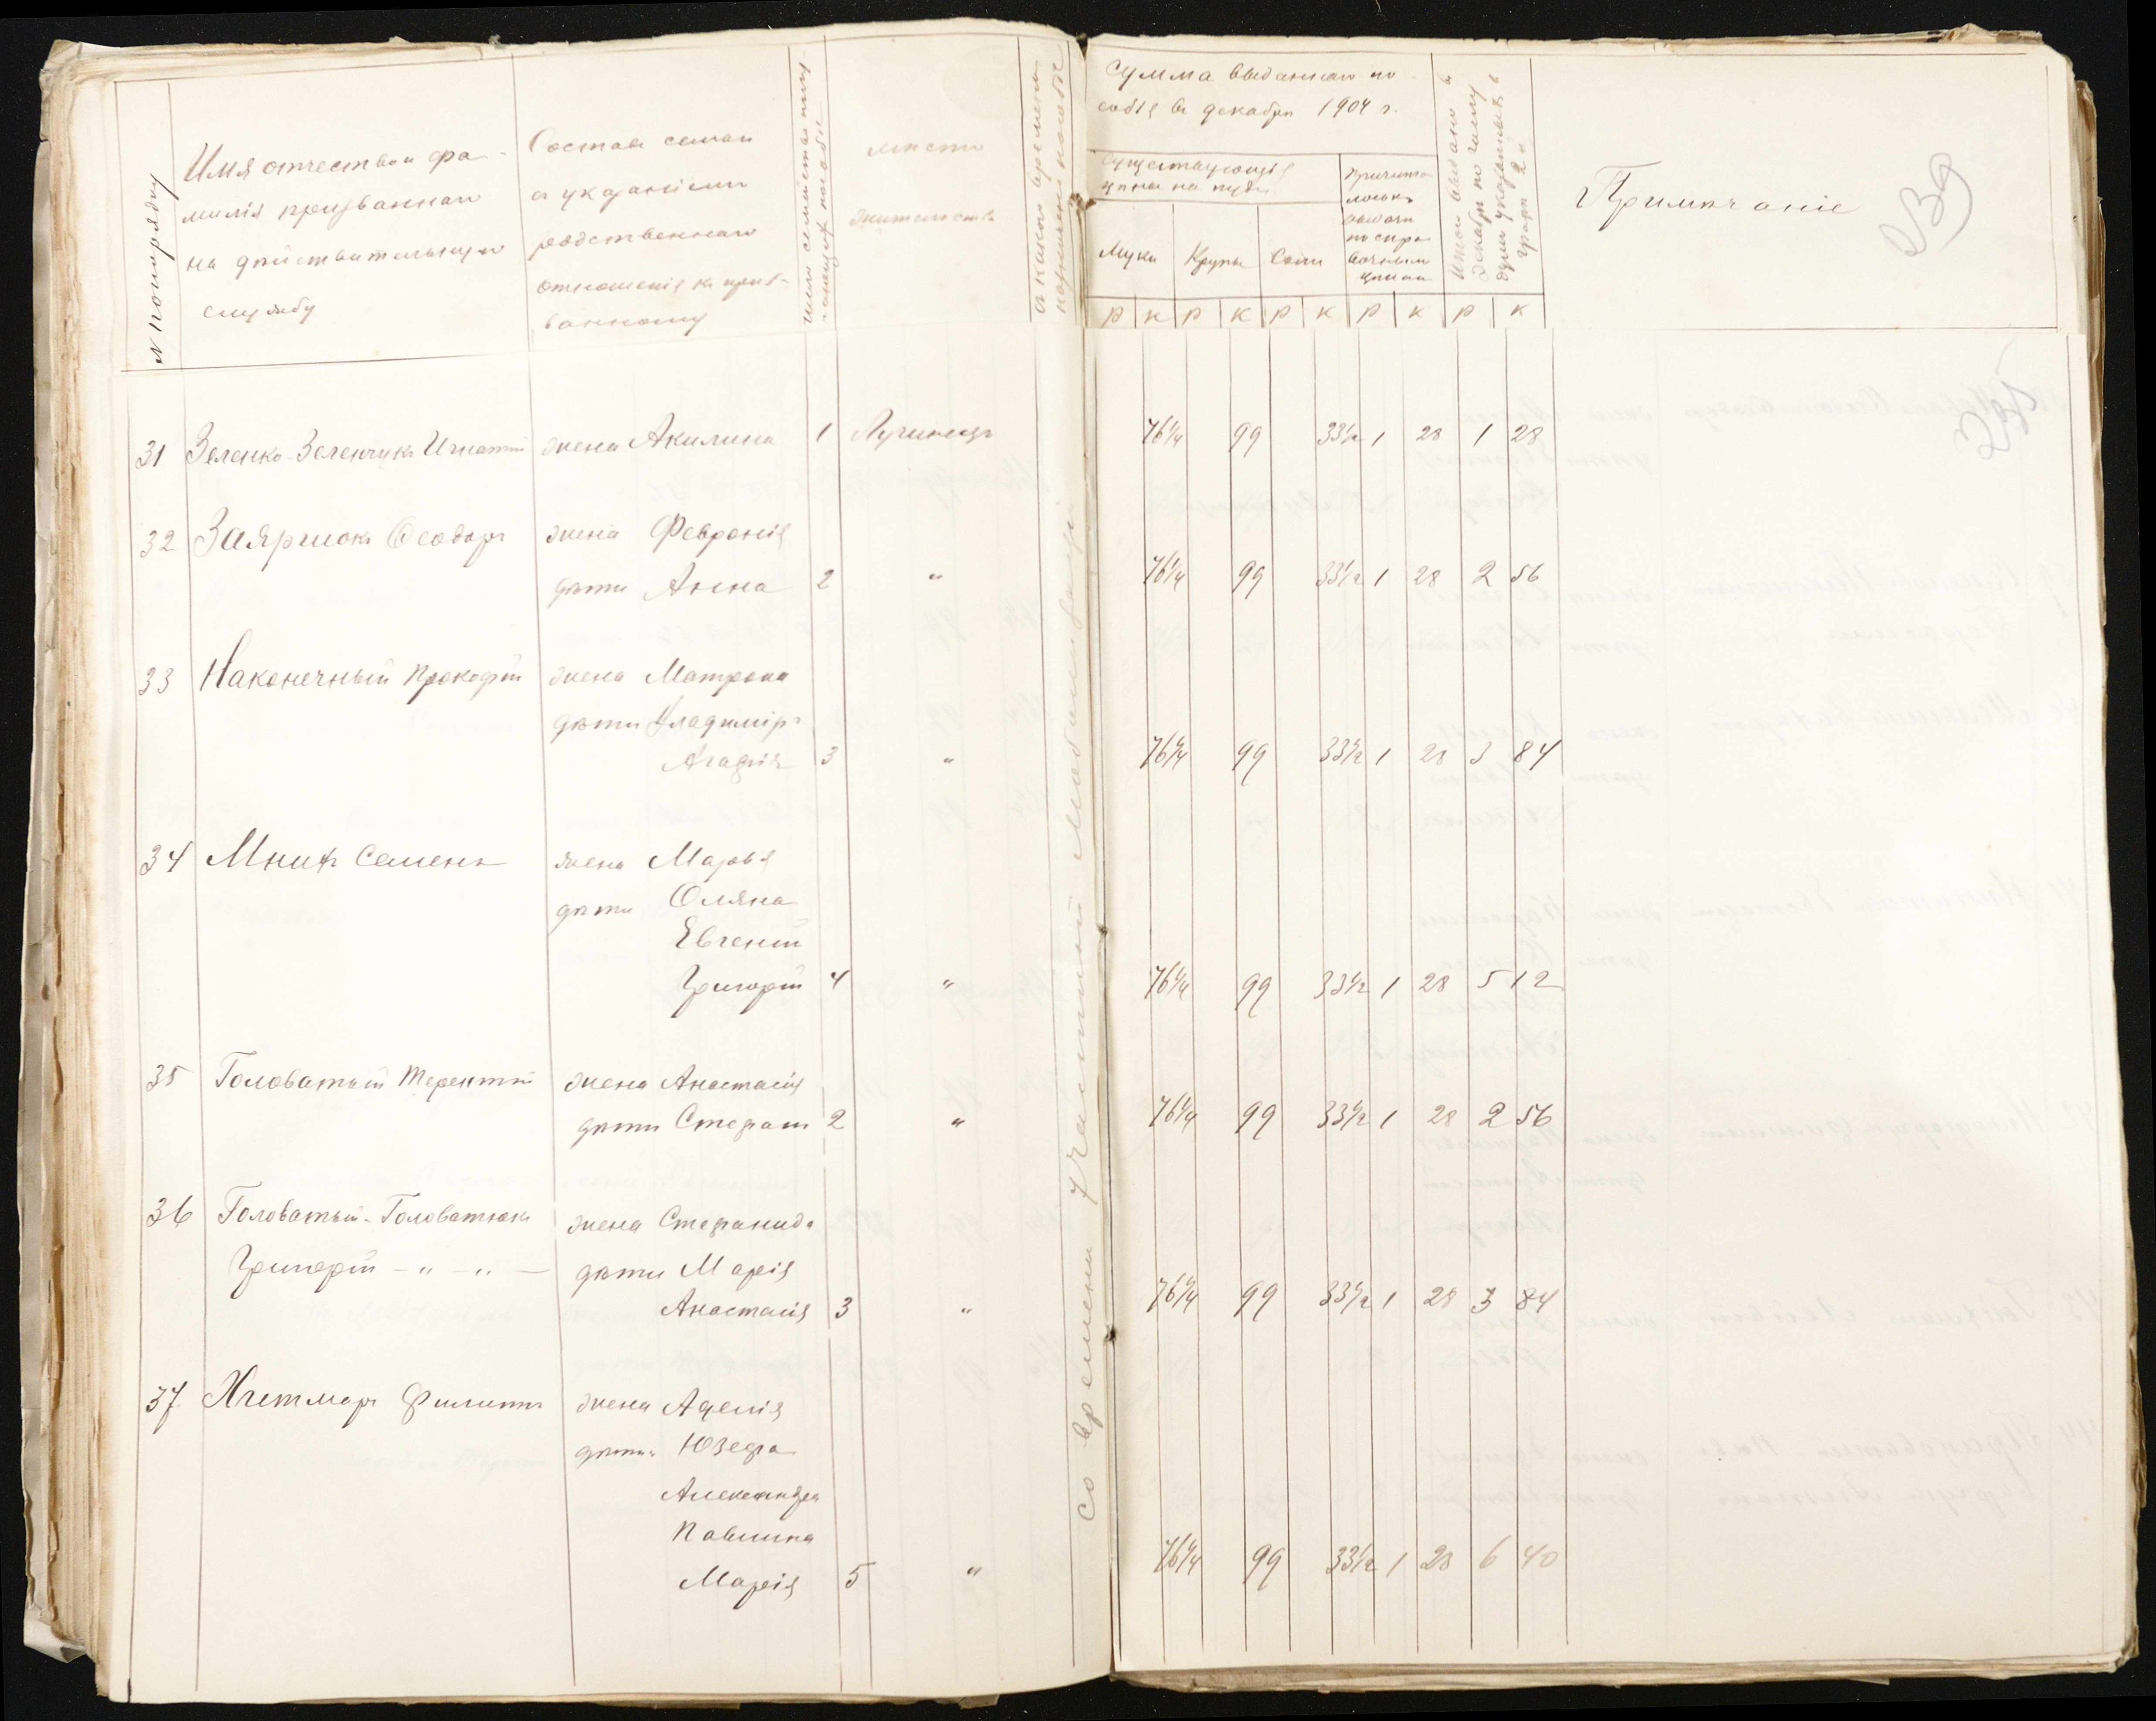 № по порядку
Имя отчество и фа-
милія призваннаго
на дѣйствительную
службу
Составъ семьи
съ указаніемъ
родственнаго
отношенія къ приз-
ванному
мѣсто
жительства
съ какого времени
назначено пособіе
Сумма выданнаго по-
собія въ декабрѣ 1904 г.
Существующія
цѣны на пуды
Муки Крупы Соли
Причита
лось къ
выдачи
по спра
вочнымъ
цѣнам
Р К Р К Р К Р К Р К
Примѣчаніе
239
31 Зеленко-Зеленчукъ Игнатій жена Акилина 1 Лучинецъ 76¼ 99 33½ 1 28 1 28
32 Заярнюкъ Ѳеодоръ жена Февронія
дѣти Анна 2 " 76¼ 99 33½ 1 28 2 56
33 Наконечный Прокофій жена Матрона
дѣти Владиміръ
Агафія 3 " 76¼ 99 33½ 1 28 3 84
34 Мнихъ Семенъ жена Марья
дѣти Оляна
Евгеній
Григорій 4 " 76¼ 99 33½ 1 28 5 12
35 Головатый Терентій жена Анастасія
дѣти Стефанъ 2 " 76¼ 99 33½ 1 28 2 56
36 Головатый-Головатюкъ жена Стефанида
Григорій - " - " - дѣти Марія
Анастасія 3 " 76¼ 99 33½ 1 28 3 84
37 Филиппъ жена Аделія
дѣти: Юзефа
Александра
Павлина
Марія 5 " 76¼ 99 33½ 1 28 6 40
Со времени частичной мобилизаціи